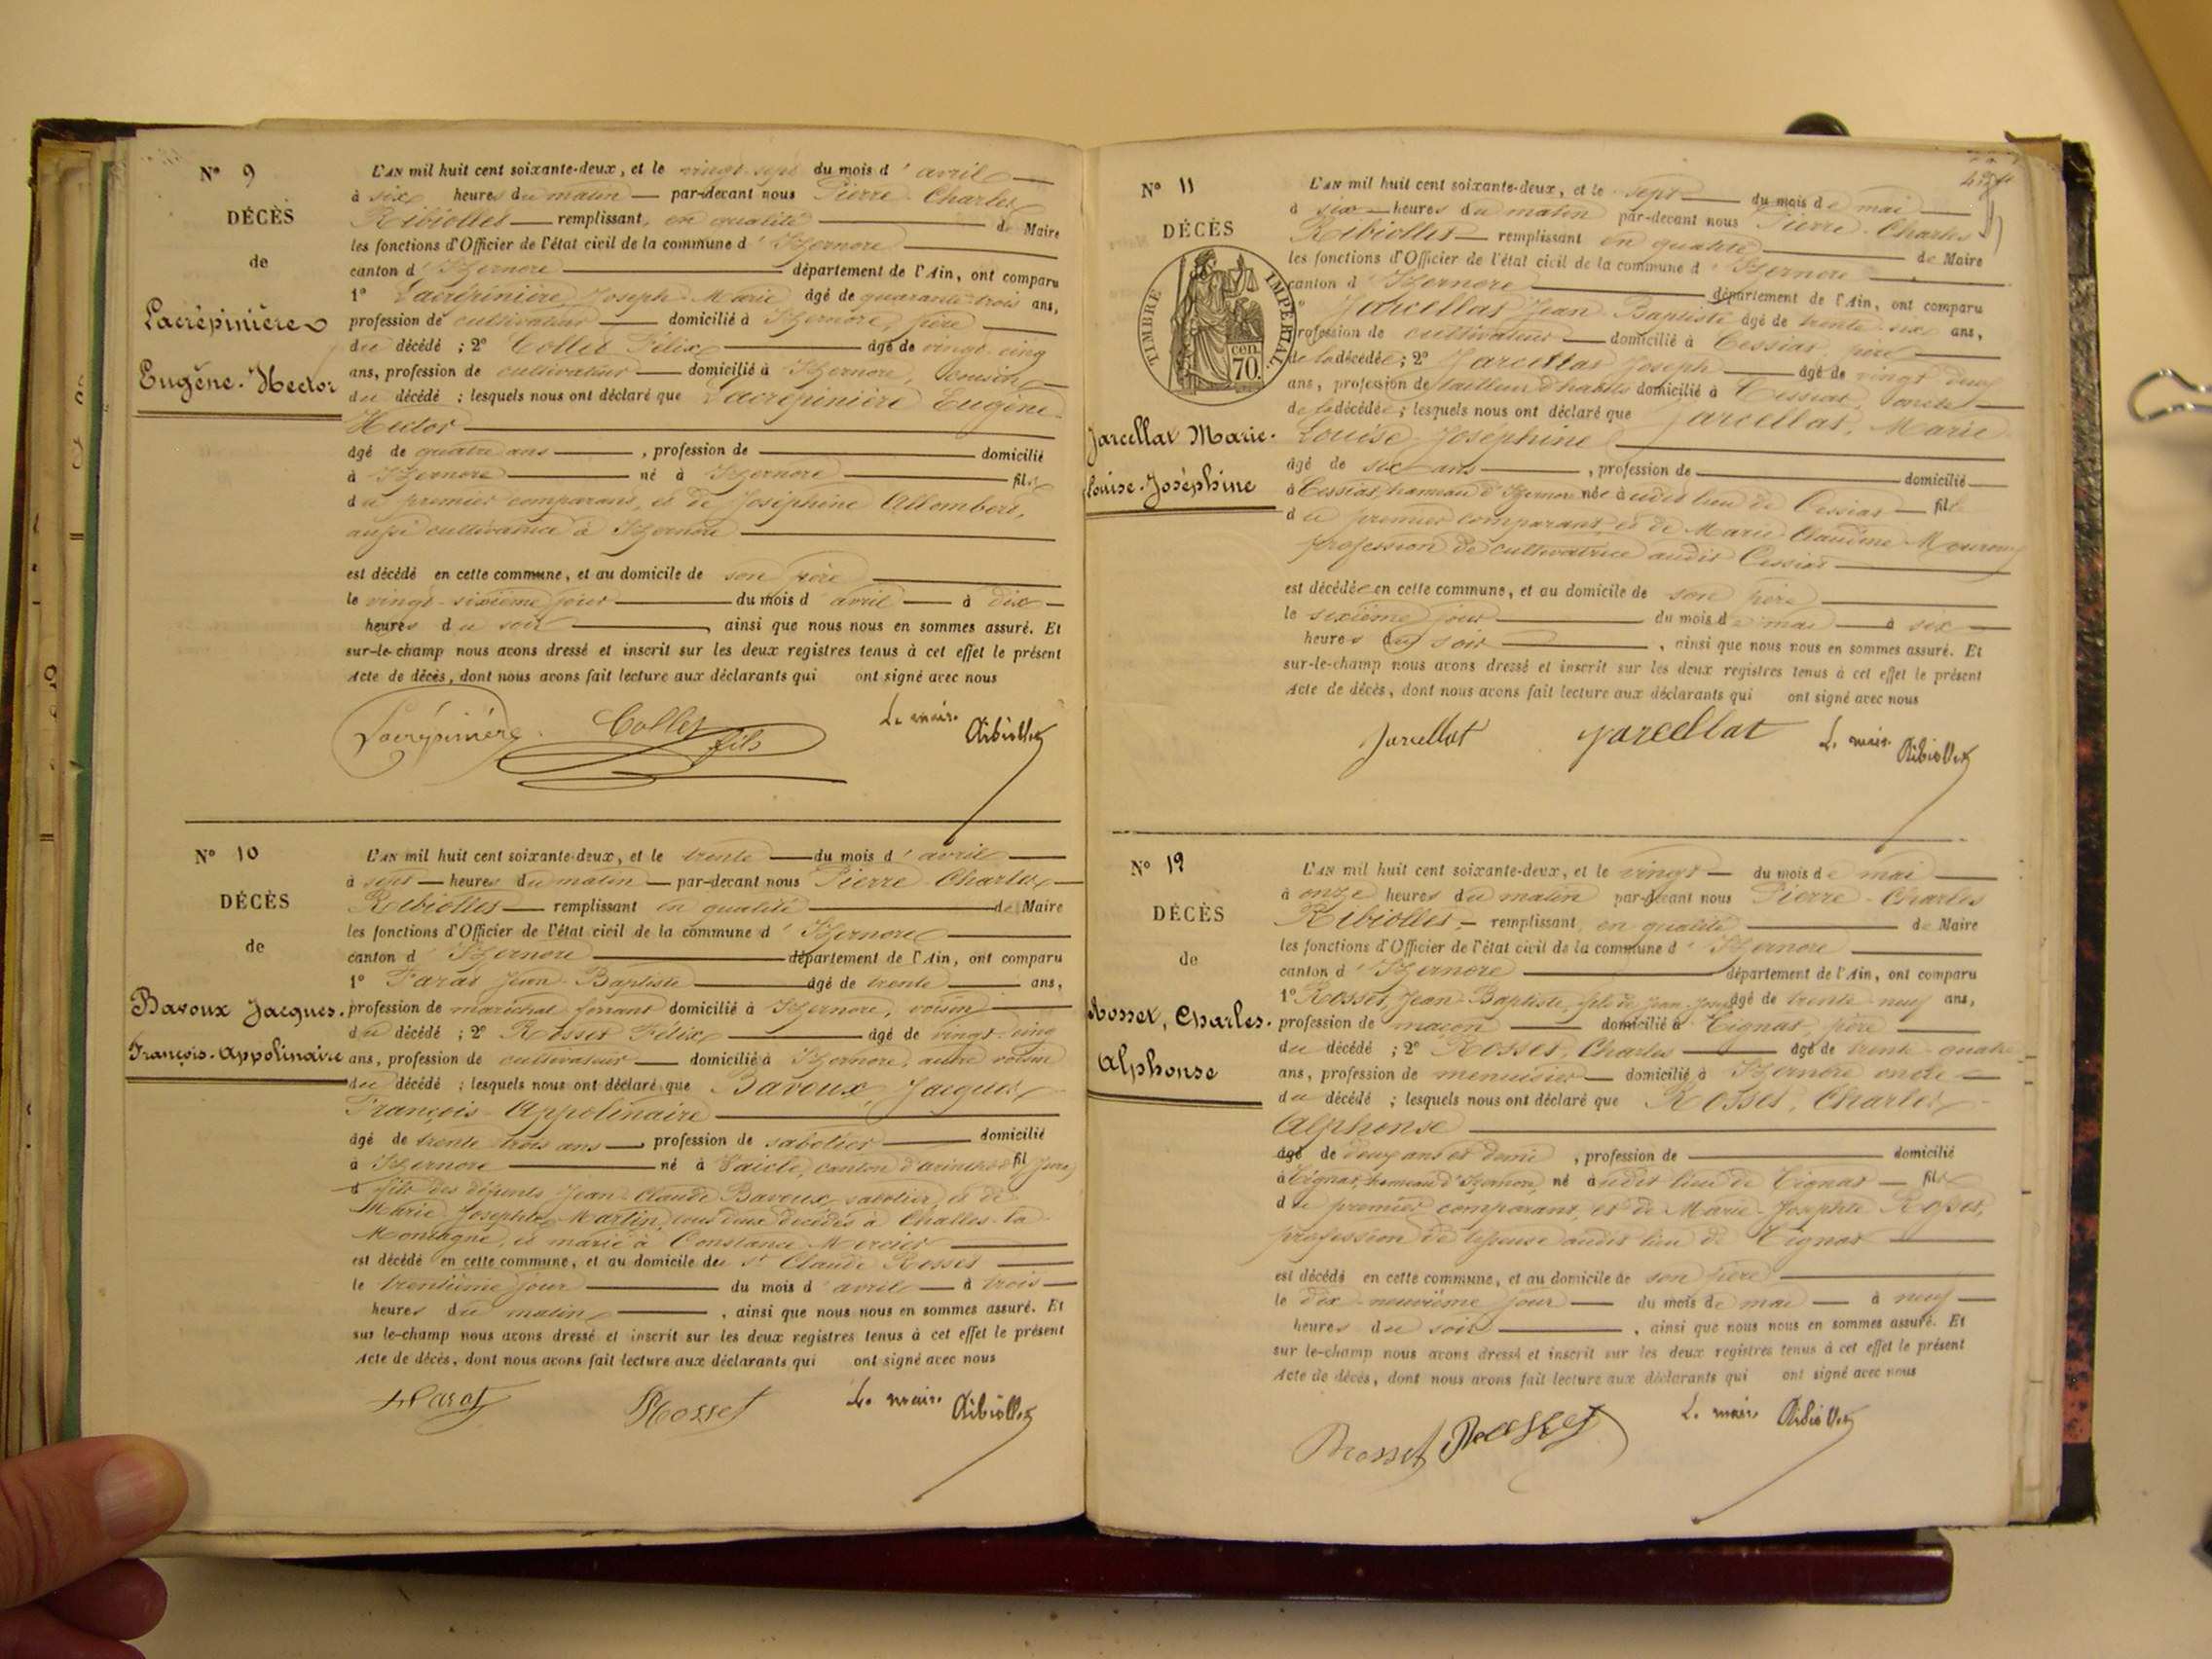 N° 9
DÉCÈS
de
Lacrépinière
Eugène-Hector
L'AN mil huit cent soixante-deux, et le vingt-sept du mois d'avril
à six heures du matin par-devant nous Pierre-Charles
Ribiollet remplissant en qualité de Maire
les fonctions d'Officier de l'état civil de la commune d'Izernore
canton d'Izernore département de l'Ain, ont comparu
1° Lacrépinière, Joseph-Marie âgé de quarante-trois ans,
profession de cultivateur domicilié à Izernore, père
du décédé ; 2° Collet Félix âgé de vingt-cinq
ans, profession de cultivateur domicilié à Izernore, cousin
du décédé ; lesquels nous ont déclaré que Lacrépinière Eugène-
Hector
âgé de quatre ans , profession de domicilié
à Izernore né à Izernore fils
du premier comparant, et de Joséphine Allombert,
aussi cultivatrice à Izernore
est décédé en cette commune, et au domicile de son père
le vingt-sixième jour du mois d'avril à dix
heures du soir , ainsi que nous nous en sommes assuré. Et
sur-le-champ nous avons dressé et inscrit sur les deux registres tenus à cet effet le présent
Acte de décès, dont nous avons fait lecture aux déclarants qui ont signé avec nous
Lacrépinière. Collet fils Le maire Ribiollet
N° 10
DÉCÈS
de
Bavoux Jacques-
François-Appolinaire
L'AN mil huit cent soixante-deux, et le trente du mois d'avril
à sept heures du matin par-devant nous Pierre-Charles
Ribiollet remplissant en qualité de Maire
les fonctions d'Officier de l'état civil de la commune d'Izernore
canton d'Izernore département de l'Ain, ont comparu
1° Farat Jean-Baptiste âgé de trente ans,
profession de maréchal ferrant domicilié à Izernore, voisin
du décédé ; 2° Rosset Félix âgé de vingt-cinq
ans, profession de cultivateur domicilié à Izernore, autre voisin
du décédé ; lesquels nous ont déclaré que Bavoux, Jacques-
François-Appolinaire
âgé de trente trois ans profession de sabotier domicilié
à Izernore né à canton d'arinthod fil (Jura)
d fils des défunts Jean-Claude Bavoux, sabotier, et de
Marie Josephte Martin, tous deux décédés à Challes-la-
Montagne, et marié à Constance Mercier
est décédé en cette commune, et au domicile de Sr Claude Rosset
le trentième jour du mois d'avril à trois
heures du matin , ainsi que nous nous en sommes assuré. Et
sur le-champ nous avons dressé et inscrit sur les deux registres tenus à cet effet le présent
Acte de décès, dont nous avons fait lecture aux déclarants qui ont signé avec nous
Farat Rosset Le maire Ribiollet
N° 11
DÉCÈS
TIMBRE IMPÉRIAL
cen. 70
Jarcellat Marie-
Louise-Joséphine
L'AN mil huit cent soixante-deux, et le sept du mois de mai
à six heures du matin par-devant nous Pierre-Charles
Ribiollet remplissant en qualité de Maire
les fonctions d'Officier de l'état civil de la commune d'Izernore
canton d'Izernore département de l'Ain, ont comparu
Jarcellat Jean-Baptiste âgé de trente-six ans,
profession de cultivateur domicilié à Cessiat, père
de la décédée ; 2° Jarcellat Joseph âgé de vingt deux
ans, profession de tailleur d'habits domicilié à Cessiat, oncle
de la décédée ; lesquels nous ont déclaré que Jarcellat, Marie-
Louise-Joséphine
âgé de six ans , profession de domicilié
à Cessiat, hameau d'Izernore née audit lieu de Cessiat fil
du premier comparant, et de Marie-Claudine
profession de cultivatrice audit Cessiat
est décédée en cette commune, et au domicile de son père
le sixième jour du mois de mai à six
heures du soir , ainsi que nous nous en sommes assuré. Et
sur-le-champ nous avons dressé et inscrit sur les deux registres tenus à cet effet le présent
Acte de décès, dont nous avons fait lecture aux déclarants qui ont signé avec nous
Jarcellat Jarcellat Le maire Ribiollet
N° 12
DÉCÈS
de
Rosset, Charles-
Alphonse
L'AN mil huit cent soixante-deux, et le vingt du mois de mai
à onze heures du matin par-devant nous Pierre-Charles
Ribiollet remplissant en qualité de Maire
les fonctions d'Officier de l'état civil de la commune d'Izernore
canton d'Izernore département de l'Ain, ont comparu
1° Rosset, Jean-Baptiste, fils de Jean-Joseph âgé de trente-neuf ans,
profession de maçon domicilié à Tignat, père
du décédé ; 2° Rosset, Charles âgé de trente-quatre
ans, profession de menuisier domicilié à Izernore oncle
du décédé ; lesquels nous ont déclaré que Rosset, Charles-
Alphonse
âgé de deux ans et demi , profession de domicilié
à Tignat, hameau d'Izernore, né audit lieu de Tignat fils
du premier comparant, et de Marie-Josephte Rosset,
profession de audit lieu de Tignat
est décédé en cette commune, et au domicile de son père
le dix-neuvième jour du mois de mai à neuf
heures du soir , ainsi que nous nous en sommes assuré. Et
sur le-champ nous avons dressé et inscrit sur les deux registres tenus à cet effet le présent
Acte de décès, dont nous avons fait lecture aux déclarants qui ont signé avec nous
Rosset Rosset Le maire Ribiollet